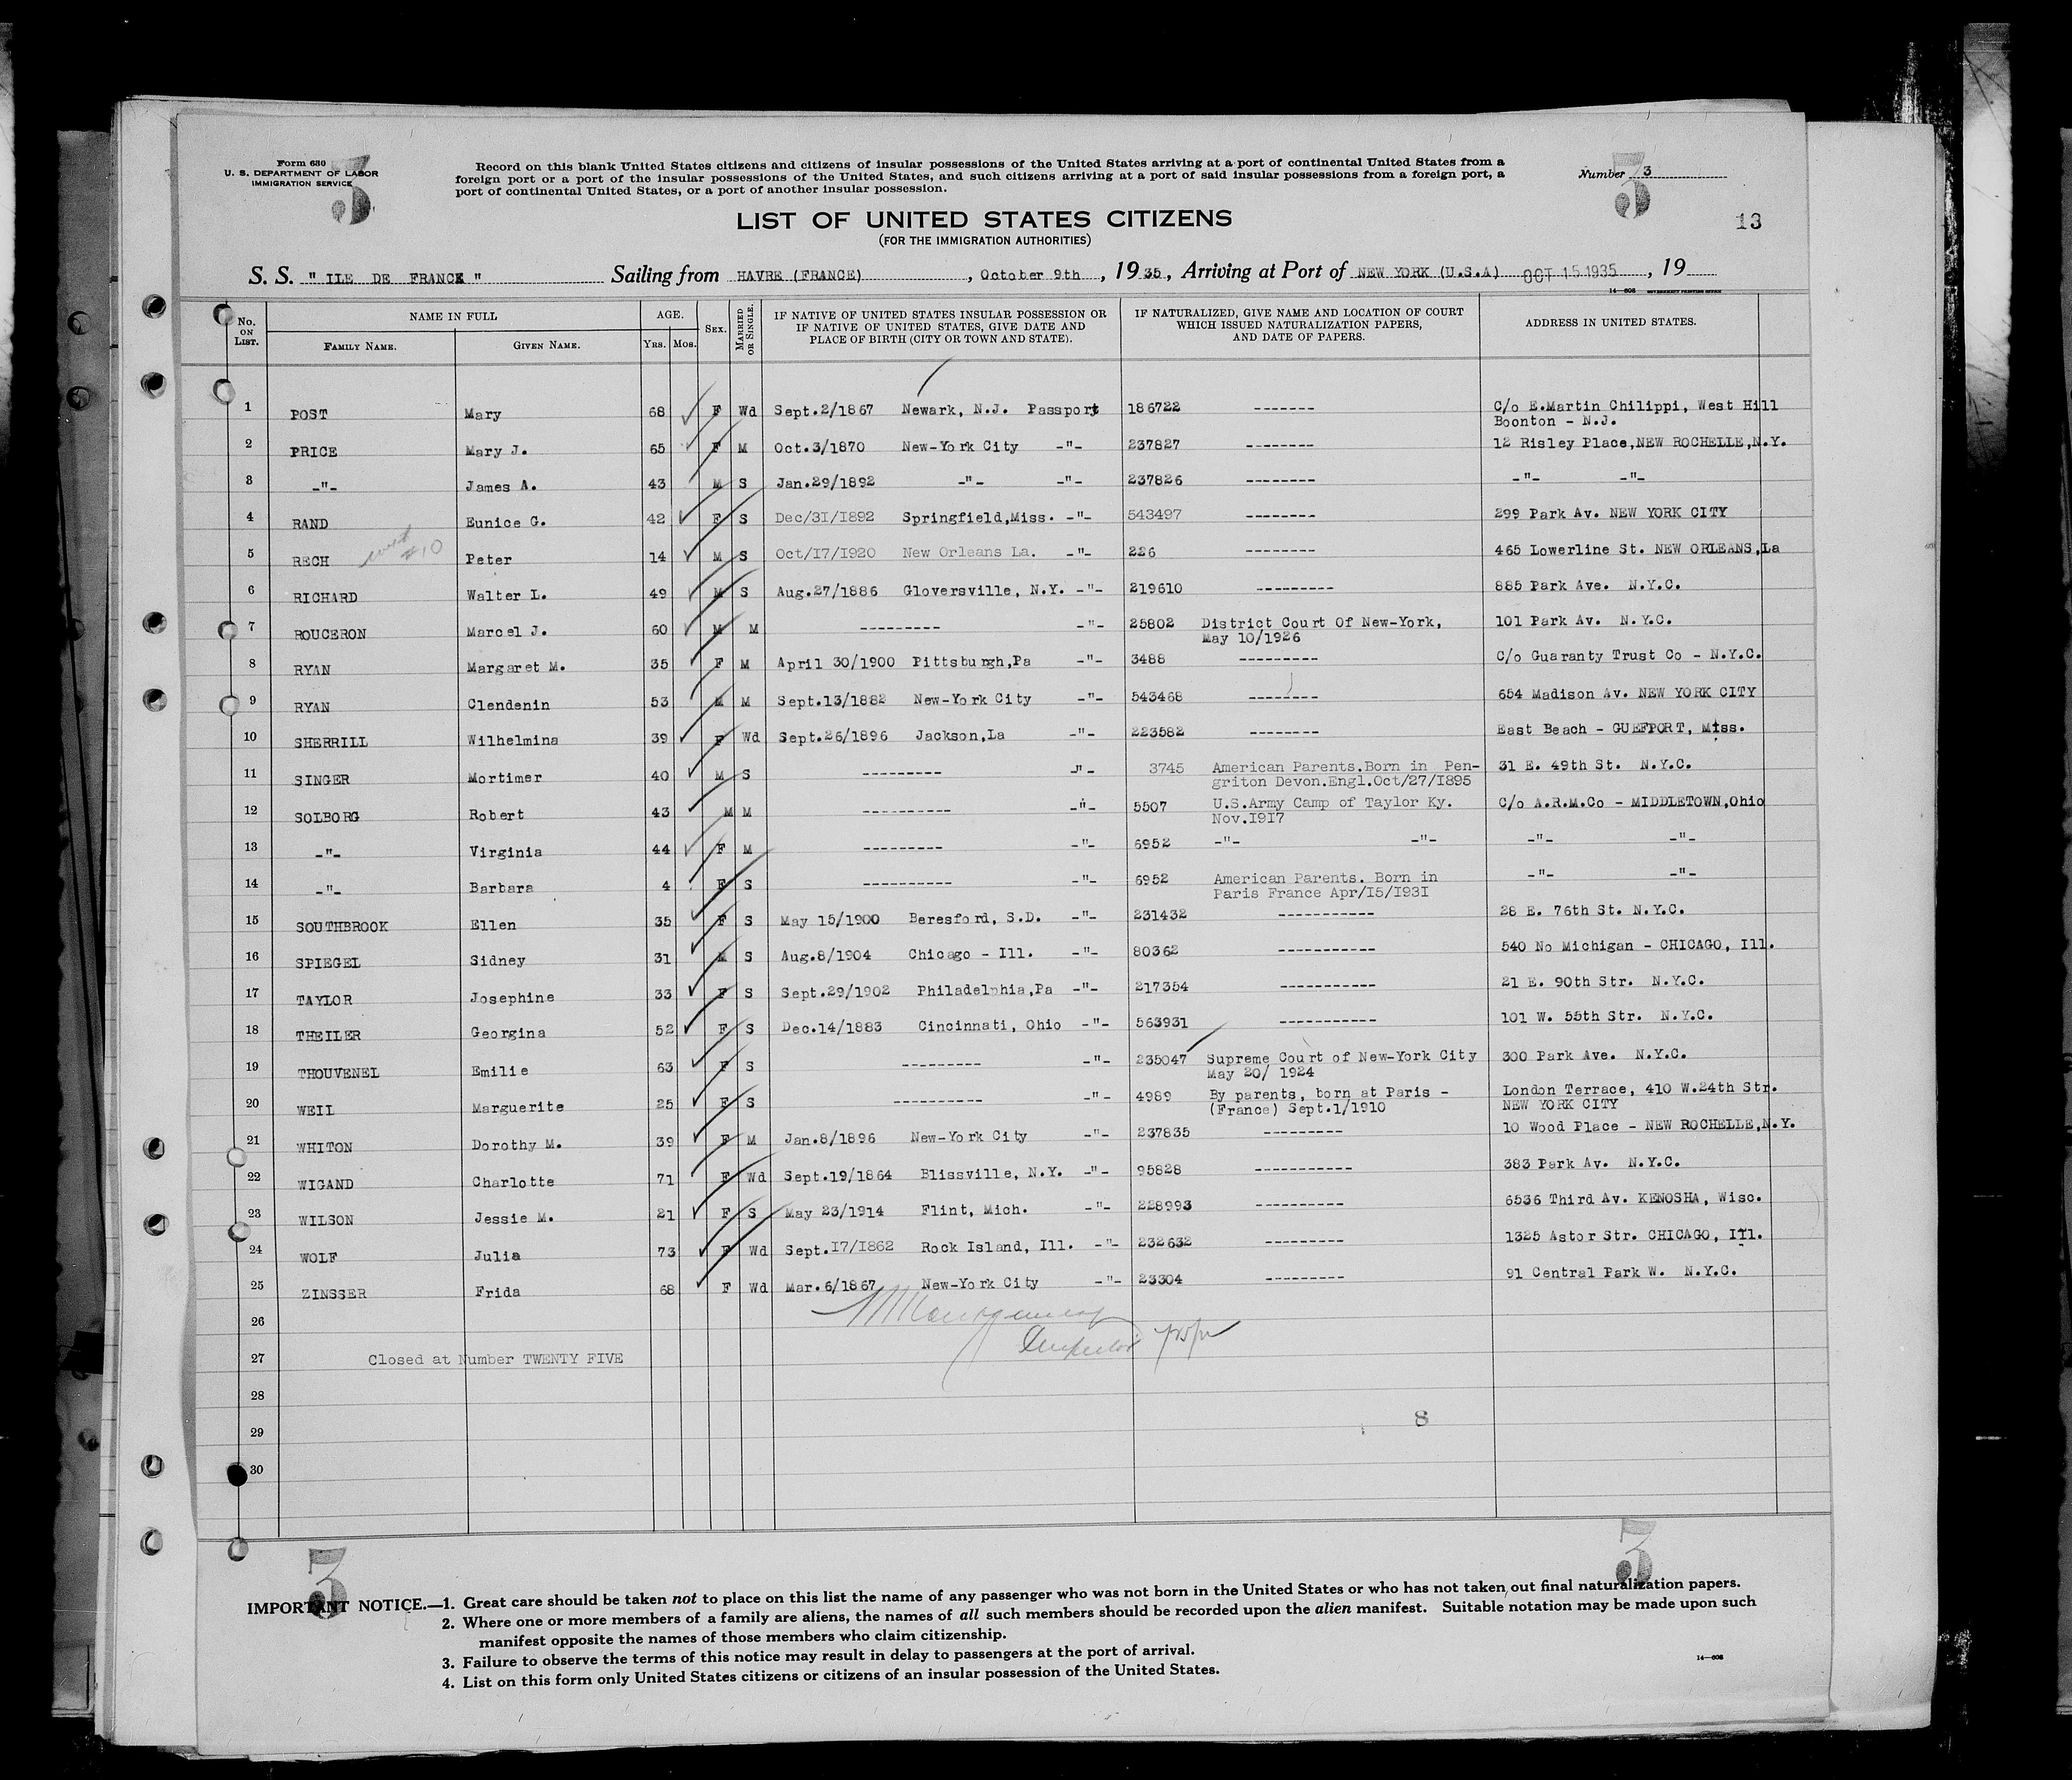 Form 630
U. S. DEPARTMENT OF LABOR
IMMIGRATION SERVICE
3
Record on this blank United States citizens and citizens of insular possessions of the United States arriving at a port of continental United States from a
foreign port or a port of the insular possessions of the United States, and such citizens arriving at a port of said insular possessions from a foreign port, a
port of continental United States, or a port of another insular possession.
Number 3
3
13
LIST OF UNITED STATES CITIZENS
(FOR THE IMMIGRATION AUTHORITIES)
S. S. " ILE DE FRANCE " Sailing from HAVRE (FRANCE) , October 9th , 1935, Arriving at Port of NEW YORK (U.S.A) OCT 15 1935 , 19
14—608 GOVERNMENT PRINTING OFFICE
No. ON LIST. NAME IN FULL FAMILY NAME. GIVEN NAME. AGE. YRS. MOS. SEX. MARRIED OR SINGLE. IF NATIVE OF UNITED STATES INSULAR POSSESSION OR IF NATIVE OF UNITED STATES, GIVE DATE AND PLACE OF BIRTH (CITY OR TOWN AND STATE). IF NATURALIZED, GIVE NAME AND LOCATION OF COURT WHICH ISSUED NATURALIZATION PAPERS, AND DATE OF PAPERS. ADDRESS IN UNITED STATES.
1 POST Mary 68 F Wd Sept.2/1867 Newark, N.J. Passport 186722 ------- C/o E.Martin Chilippi, West Hill
Boonton - N.J.
2 PRICE Mary J. 65 F M Oct.3/1870 New-York City -"- 237827 -------- 12 Risley Place,NEW ROCHELLE,N.Y.
3 -"- James A. 43 M S Jan.29/1892 -"- -"- 237826 -------- -"- -"-
4 RAND Eunice G. 42 F S Dec/31/1892 Springfield,Miss. -"- 543497 -------- 299 Park Av. NEW YORK CITY
5 RECH #10 Peter 14 M S Oct/17/1920 New Orleans La. -"- 226 -------- 465 Lowerline St. NEW ORLEANS,La
6 RICHARD Walter L. 49 M S Aug.27/1886 Gloversville, N.Y. -"- 219610 --------- 885 Park Ave. N.Y.C.
7 ROUCERON Marcel J. 60 M M --------- -"- 25802 District Court Of New-York, 101 Park Av. N.Y.C.
May 10/1926
8 RYAN Margaret M. 35 F M April 30/1900 Pittsburgh,Pa -"- 3488 --------- C/o Guaranty Trust Co - N.Y.C.
9 RYAN Clendenin 53 M M Sept.13/1882 New-York City -"- 543468 -------- 654 Madison Av. NEW YORK CITY
10 SHERRILL Wilhelmina 39 F Wd Sept.26/1896 Jackson,La -"- 223582 -------- East Beach - GUEFPORT, Miss.
11 SINGER Mortimer 40 M S --------- -"- 3745 American Parents.Born in Pen- 31 E. 49th St. N.Y.C.
griton Devon.Engl.Oct/27/1895
12 SOLBORG Robert 43 M M ---------- -"- 5507 U.S.Army Camp of Taylor Ky. C/o A.R.M.Co - MIDDLETOWN,Ohio
Nov.1917
13 -"- Virginia 44 F M --------- -"- 6952 -"- -"- -"- -"-
14 -"- Barbara 4 F S ---------- -"- 6952 American Parents. Born in -"- -"-
Paris France Apr/15/1931
15 SOUTHBROOK Ellen 35 F S May 15/1900 Beresford, S.D. -"- 231432 ----------- 28 E. 76th St. N.Y.C.
16 SPIEGEL Sidney 31 M S Aug.8/1904 Chicago - Ill. -"- 80362 ----------- 540 No Michigan - CHICAGO, Ill.
17 TAYLOR Josephine 33 F S Sept.29/1902 Philadelphia,Pa -"- 217354 ----------- 21 E. 90th Str. N.Y.C.
18 THEILER Georgina 52 F S Dec.14/1883 Cincinnati, Ohio -"- 563931 ----------- 101 W. 55th Str. N.Y.C.
19 THOUVENEL Emilie 63 F S --------- -"- 235047 Supreme Court of New-York City 300 Park Ave. N.Y.C.
May 20/ 1924
20 WEIL Marguerite 25 F S ---------- -"- 4989 By parents, born at Paris - London Terrace, 410 W.24th Str.
(France) Sept.1/1910 NEW YORK CITY
21 WHITON Dorothy M. 39 F M Jan.8/1896 New-York City -"- 237835 --------- 10 Wood Place - NEW ROCHELLE,N.Y.
22 WIGAND Charlotte 71 F Wd Sept.19/1864 Blissville, N.Y. -"- 95828 ----------- 383 Park Av. N.Y.C.
23 WILSON Jessie M. 21 F S May 23/1914 Flint, Mich. -"- 228993 ---------- 6536 Third Av. KENOSHA, Wisc.
24 WOLF Julia 73 F Wd Sept.17/1862 Rock Island, Ill. -"- 232632 --------- 1325 Astor Str. CHICAGO, Ill.
25 ZINSSER Frida 68 F Wd Mar.6/1867 New-York City -"- 23304 --------- 91 Central Park W. N.Y.C.
26 Montgomery
Inspector
27 Closed at Number TWENTY FIVE
28
8
29
30
3
3
IMPORTANT NOTICE.—1. Great care should be taken not to place on this list the name of any passenger who was not born in the United States or who has not taken out final naturalization papers.
2. Where one or more members of a family are aliens, the names of all such members should be recorded upon the alien manifest. Suitable notation may be made upon such
manifest opposite the names of those members who claim citizenship.
3. Failure to observe the terms of this notice may result in delay to passengers at the port of arrival.
4. List on this form only United States citizens or citizens of an insular possession of the United States.
14—608